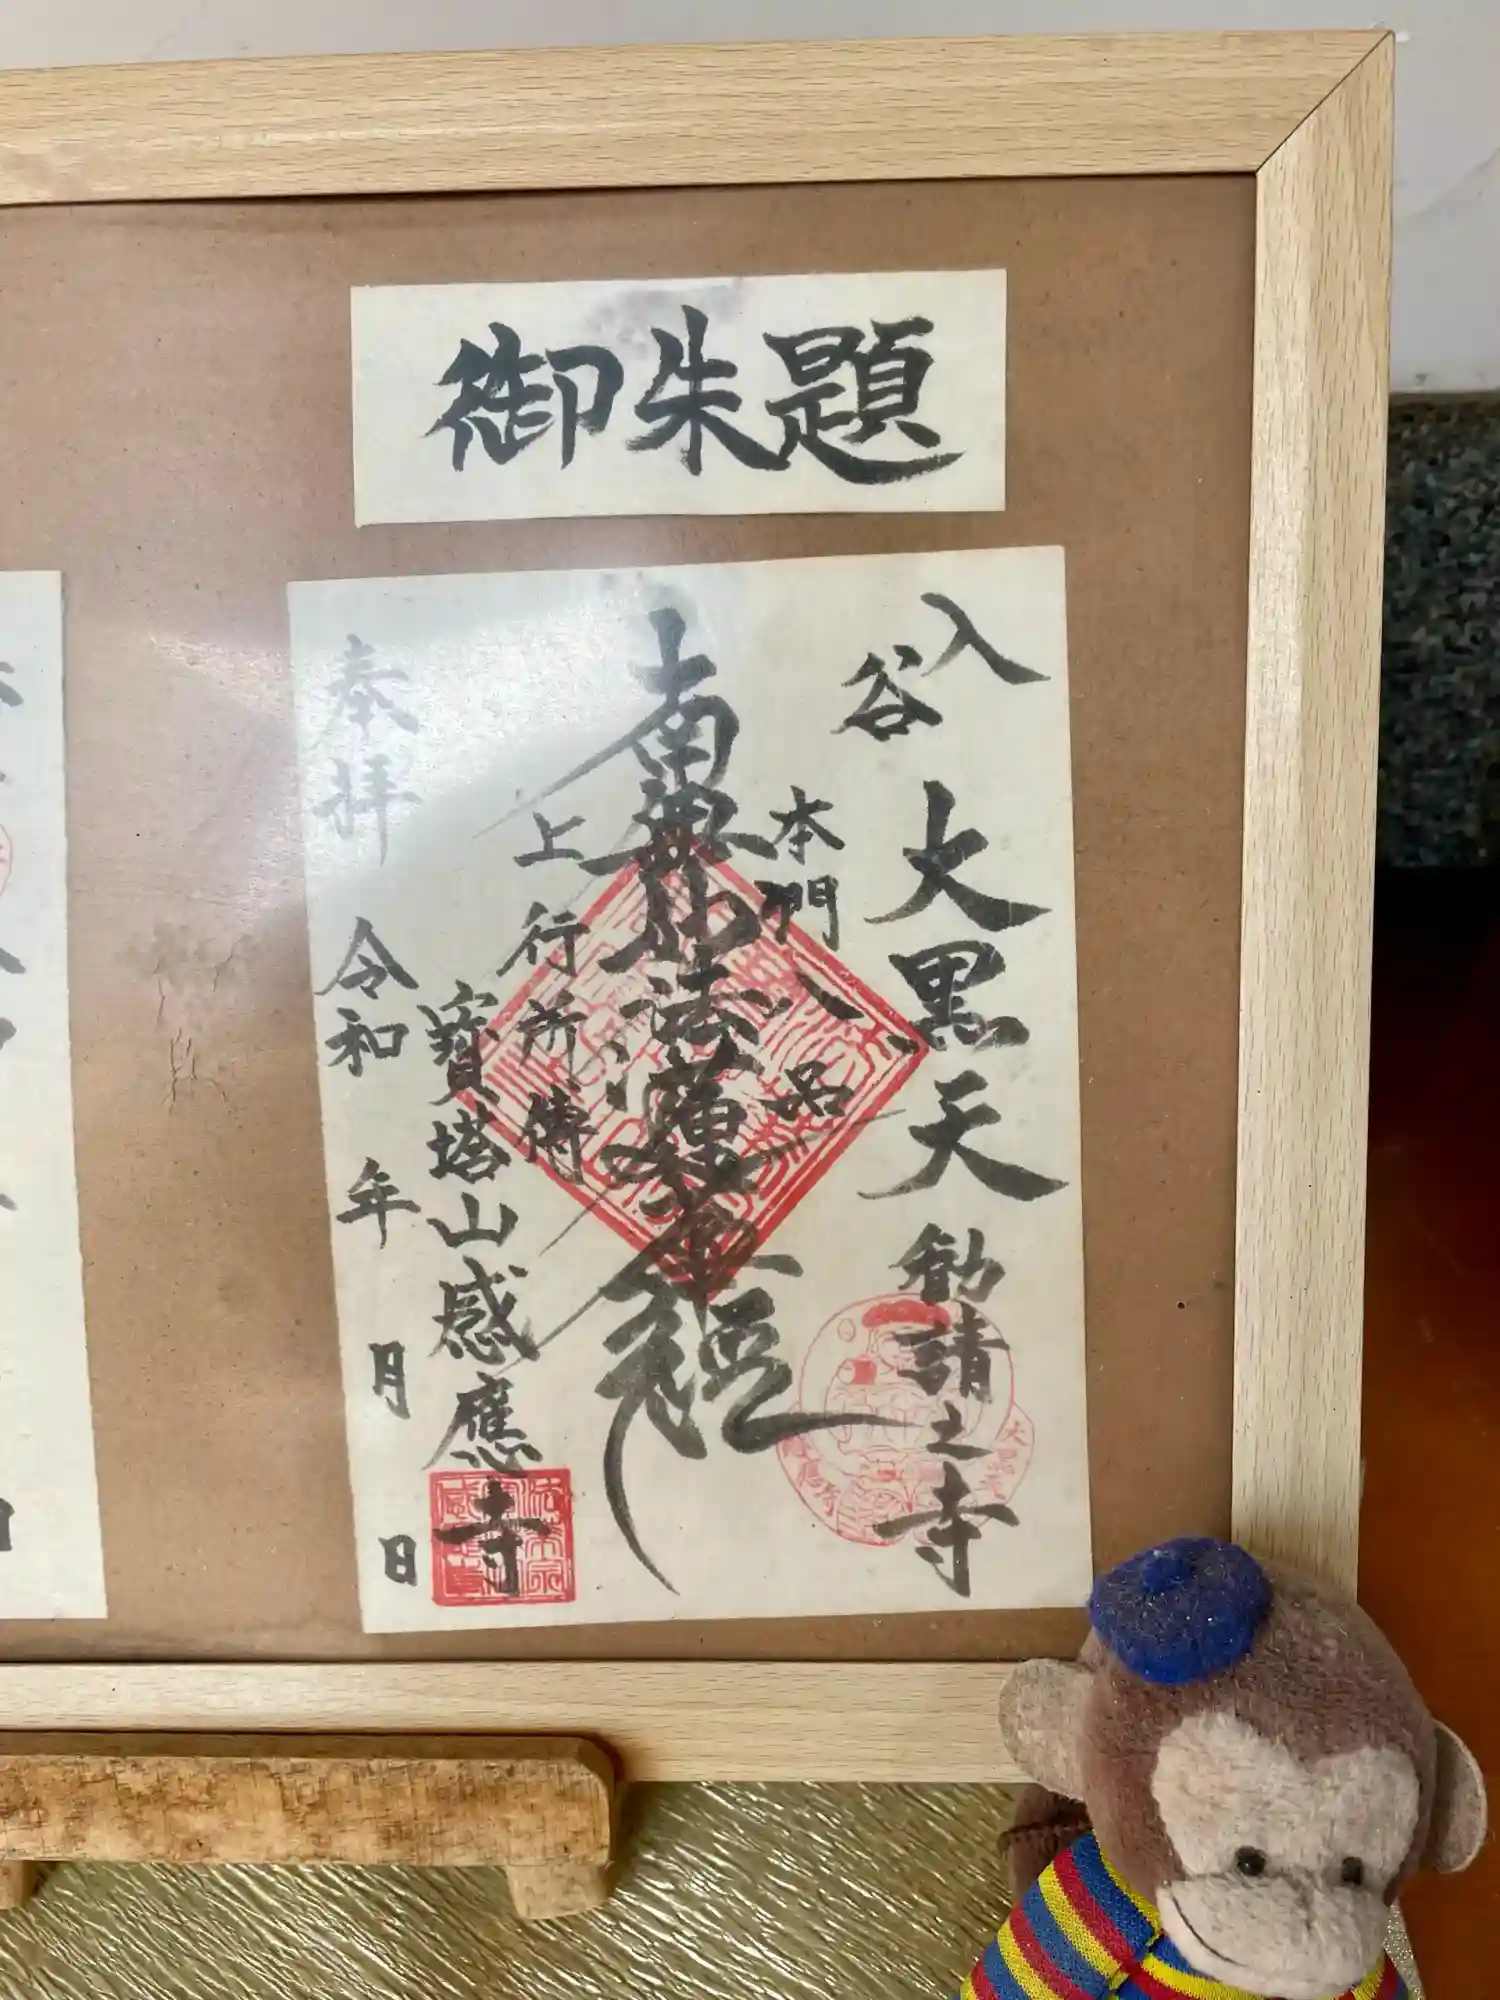 御朱題
入谷
大黒天
勧請之寺
本門八品
南無妙法蓮華経
上行所傳
寶塔山感應寺
奉拝
令和 年 月 日